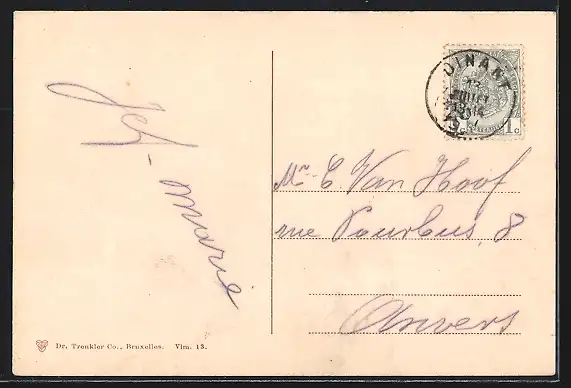 DINANT
JUILLET
1 c
Mr. E Van Hoof
rue Pourbus, 8
Anvers
Marie
Dr. Trenkler Co., Bruxelles. Vlm. 13.